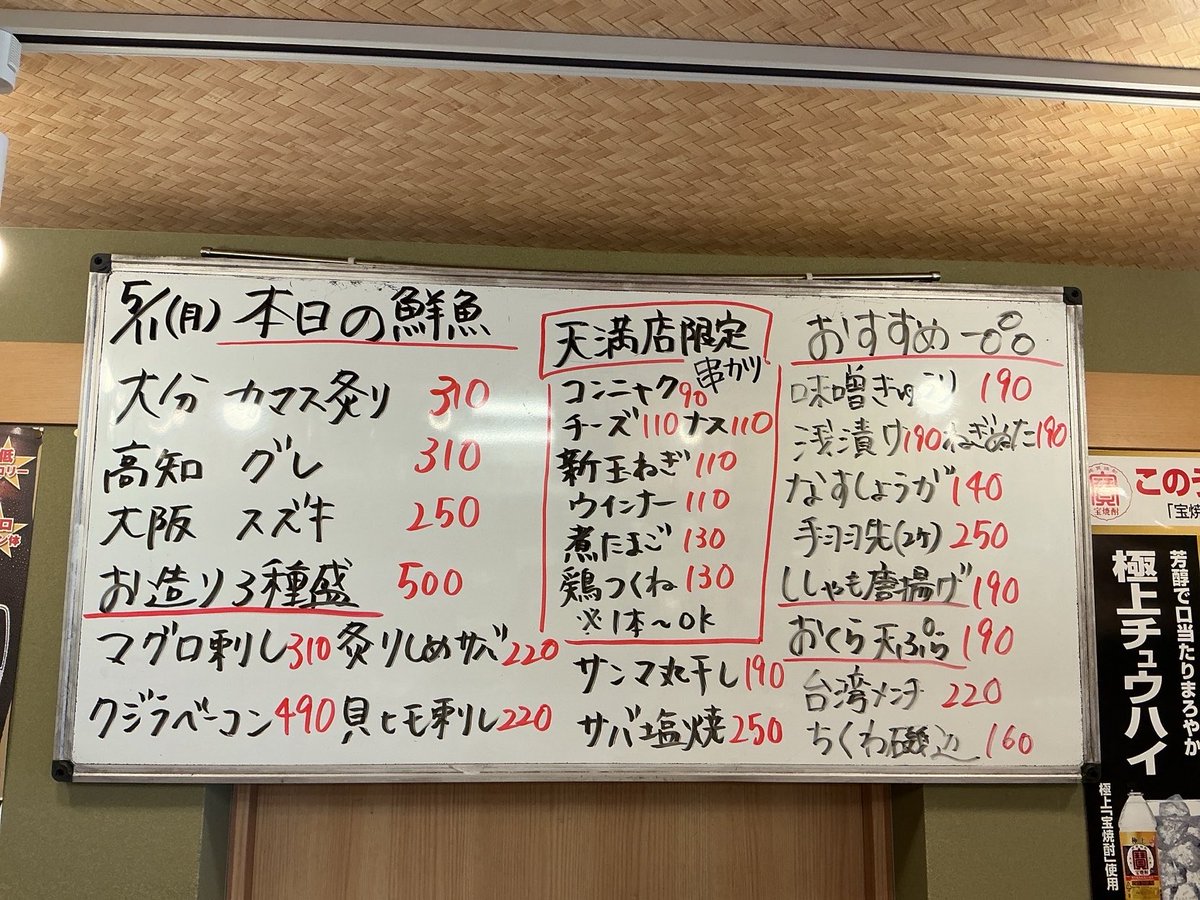 5/11(月) 本日の鮮魚
大分 カマス炙り 310
高知 グレ 310
大阪 スズキ 250
お造り3種盛 500
マグロ刺し310 炙りしめサバ220
クジラベーコン490 貝ヒモ刺し220
天満店限定
串カツ
コンニャク90
チーズ110 ナス110
新玉ねぎ 110
ウインナー 110
煮たまご 130
鶏つくね 130
※1本~OK
サンマ丸干し190
サバ塩焼250
おすすめ一品
味噌きゅうり 190
浅漬け190 ねぎぬた190
なすしょうが140
手羽先(2ケ) 250
ししゃも唐揚げ190
おくら天ぷら 190
台湾メンチ 220
ちくわ磯辺 160
低
ロリー
寳
宝焼酎
この
「宝焼
芳醇で口当たりまろやか
極上チュウハイ
極上「宝焼酎」使用